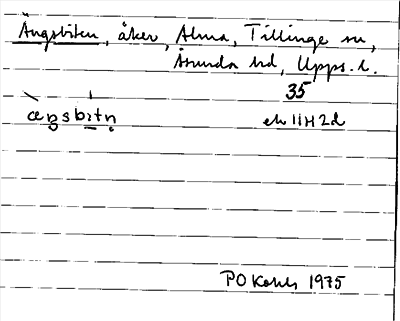 Ängsbiten, åker, Alma, Tillinge sn,
Åsunda hd, Upps. l.
35
ek 11H2d
PO 1975